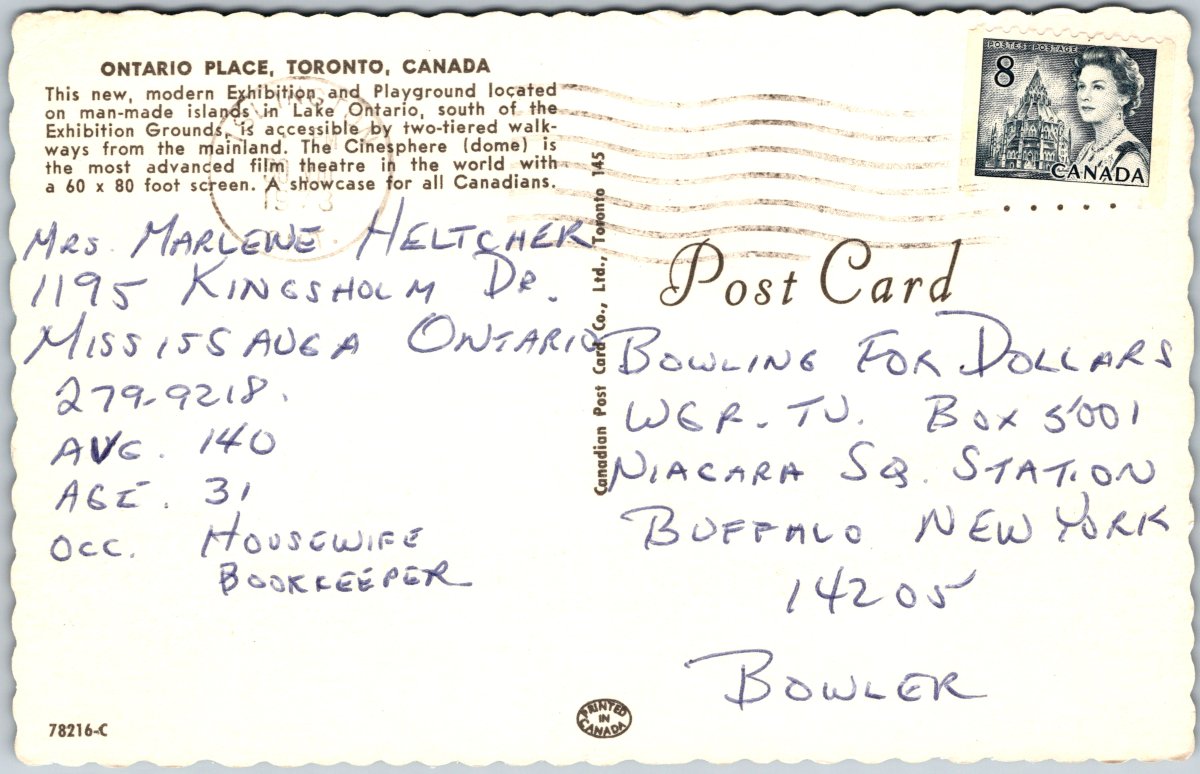 ONTARIO PLACE, TORONTO, CANADA
This new, modern Exhibition and Playground located
on man-made islands in Lake Ontario, south of the
Exhibition Grounds, is accessible by two-tiered walk-
ways from the mainland. The Cinesphere (dome) is
the most advanced film theatre in the world with
a 60 x 80 foot screen. A showcase for all Canadians.
MRS. MARLENE HELTCHER
1195 KINGSHOLM DR.
MISSISSAUGA ONTARIO
279-9218.
AVG. 140
AGE. 31
OCC. HOUSEWIFE
BOOKKEEPER
78216-C
Canadian Post Card Co., Ltd., Toronto 145
PRINTED
IN
CANADA
POSTES POSTAGE
8
CANADA
Post Card
BOWLING FOR DOLLARS
WGR-TV. BOX 5001
NIAGARA SQ. STATION
BUFFALO NEW YORK
14205
BOWLER